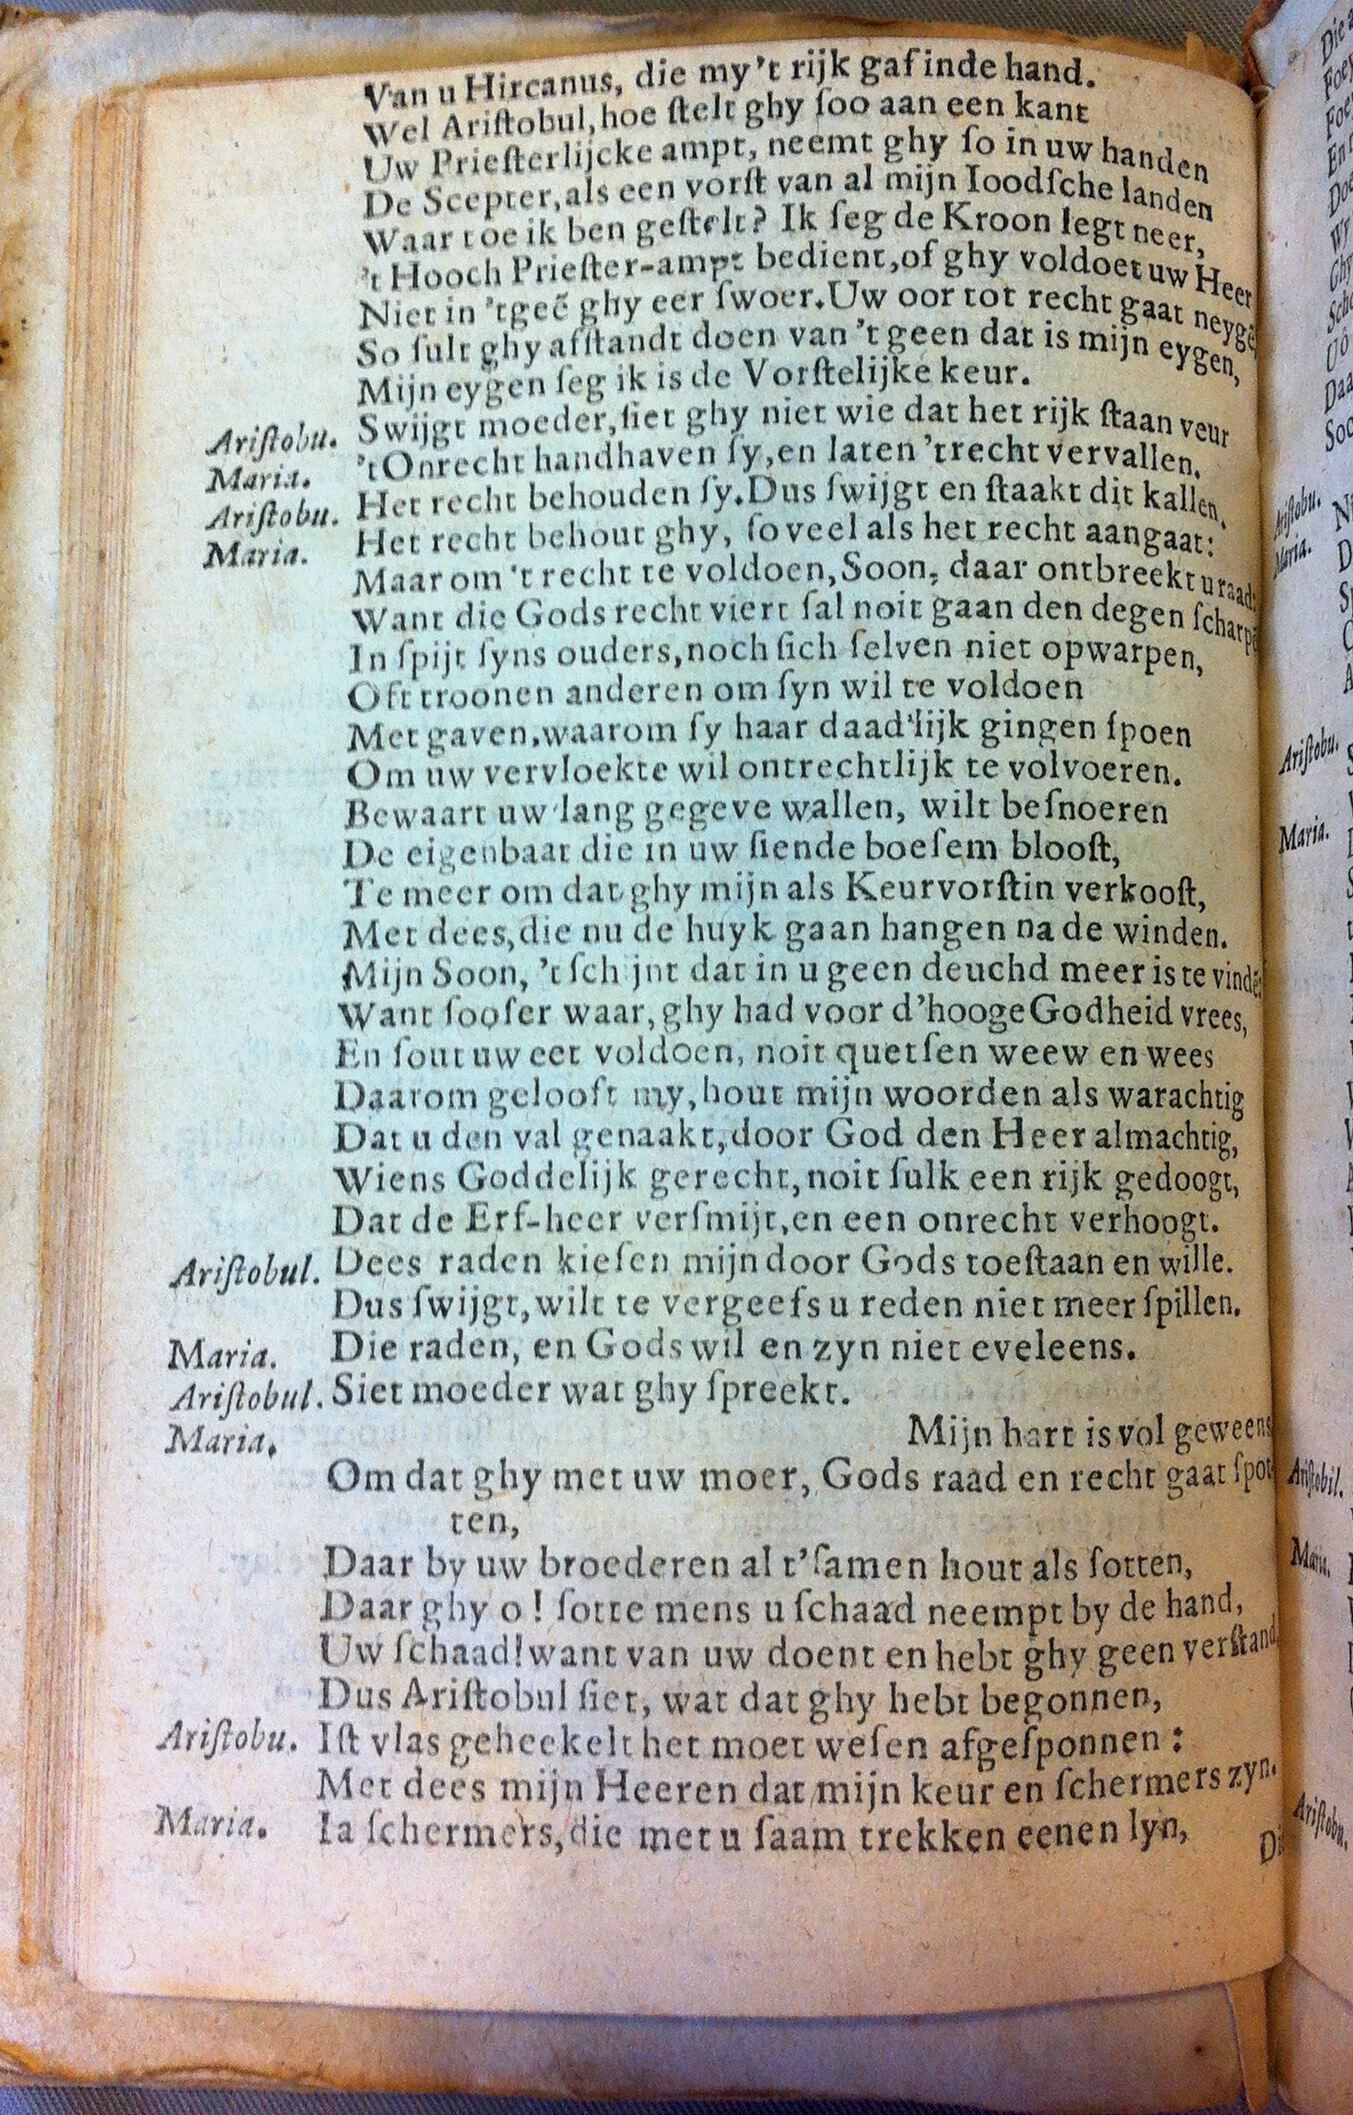 Van u Hircanus, die my 't rijk gaf inde hand.
Wel Ariſtobul, hoe ſtelt ghy ſoo aan een kant
Uw Prieſterlijcke ampt, neemt ghy ſo in uw handen
De Scepter, als een vorſt van al mijn Ioodſche landen
Waar toe ik ben geſtelt? Ik ſeg de Kroon legt neer,
't Hooch Prieſter-ampt bedient, of ghy voldoet uw Heer
Niet in 'tgeē ghy eer ſwoer. Uw oor tot recht gaat neygē
So ſult ghy afſtandt doen van 't geen dat is mijn eygen,
Mijn eygen ſeg ik is de Vorſtelijke keur.
Ariſtobu. Swijgt moeder, ſiet ghy niet wie dat het rijk ſtaan veur
Maria. 't Onrecht handhaven ſy, en laten 'trecht vervallen.
Ariſtobu. Het recht behouden ſy. Dus ſwijgt en ſtaakt dit kallen.
Maria. Het recht behout ghy, ſo veel als het recht aangaat:
Maar om 't recht te voldoen, Soon, daar ontbreekt u raad:
Want die Gods recht viert ſal noit gaan den degen ſcharpē
In ſpijt ſyns ouders, noch ſich ſelven niet opwarpen,
Oft troonen anderen om ſyn wil te voldoen
Met gaven, waarom ſy haar daad'lijk gingen ſpoen
Om uw vervloekte wil ontrechtlijk te volvoeren.
Bewaart uw lang gegeve wallen, wilt beſnoeren
De eigenbaat die in uw ſiende boeſem blooſt,
Te meer om dat ghy mijn als Keurvorſtin verkooſt,
Met dees, die nu de huyk gaan hangen na de winden.
Mijn Soon, 't ſchijnt dat in u geen deuchd meer is te vindē:
Want ſooſer waar, ghy had voor d'hooge Godheid vrees,
En ſout uw eet voldoen, noit quetſen weew en wees
Daarom gelooft my, hout mijn woorden als warachtig
Dat u den val genaakt, door God den Heer almachtig,
Wiens Goddelijk gerecht, noit ſulk een rijk gedoogt,
Dat de Erf-heer verſmijt, en een onrecht verhoogt.
Ariſtobul. Dees raden kieſen mijn door Gods toeſtaan en wille.
Dus ſwijgt, wilt te vergeefs u reden niet meer ſpillen.
Maria. Die raden, en Gods wil en zyn niet eveleens.
Ariſtobul. Siet moeder wat ghy ſpreekt.
Maria. Mijn hart is vol geweens
Om dat ghy met uw moer, Gods raad en recht gaat ſpot
ten,
Daar by uw broederen al t'ſamen hout als ſotten,
Daar ghy o! ſotte mens u ſchaad neempt by de hand,
Uw ſchaad! want van uw doent en hebt ghy geen verſtand,
Dus Ariſtobul ſiet, wat dat ghy hebt begonnen,
Ariſtobu. Iſt vlas geheekelt het moet weſen afgeſponnen:
Met dees mijn Heeren dat mijn keur en ſchermers zyn.
Maria. Ia ſchermers, die met u ſaam trekken eenen lyn,